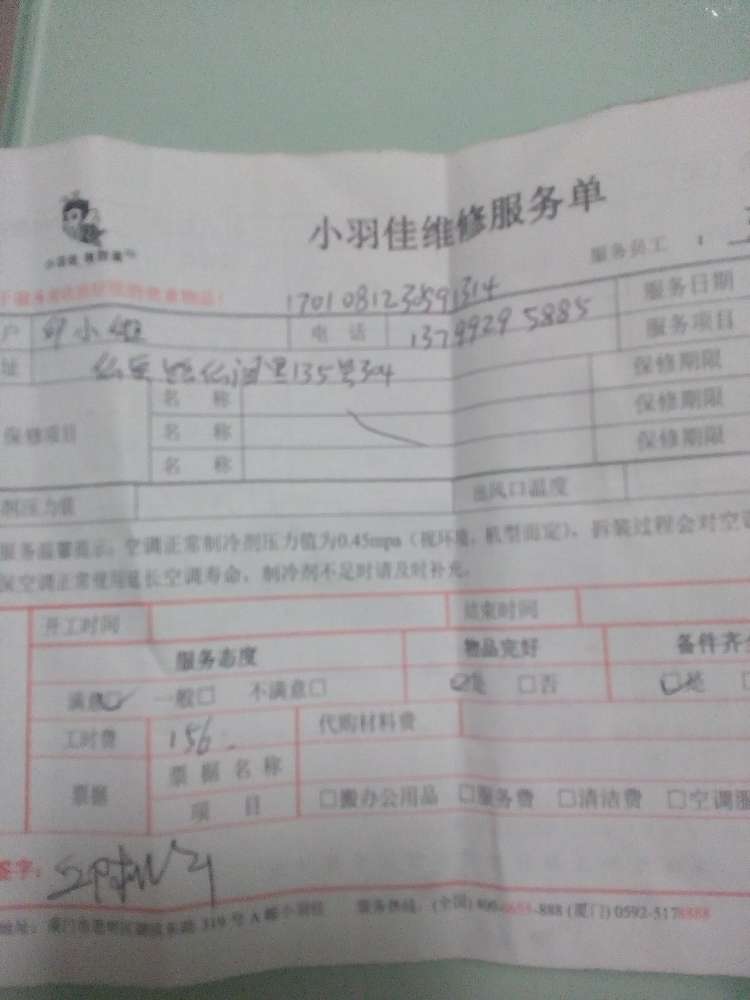 小羽佳维修服务单
服务员工：
1701081230591314
户 小姐 电话 13799295885 服务日期
址 135号304 服务项目
名称 保修期限
保修项目 名称 保修期限
名称 保修期限
剂压力值 出风口温度
服务温馨提示：空调正常制冷剂压力值为0.45mpa（视环境、机型而定），拆装过程会对空
保空调正常使用延长空调寿命，制冷剂不足时请及时补充。
开工时间 结束时间
服务态度 物品完好 备件齐全
满意□ 一般□ 不满意□ □是 □否 □是
工时费 156 代购材料费
票据 票据名称
项目 □搬办公用品 □服务费 □清洁费 □空调服
签字：
地址：厦门市思明区湖滨东路319号A 小羽佳 服务热线：(全国) 400 -888 (厦门) 0592-5178888